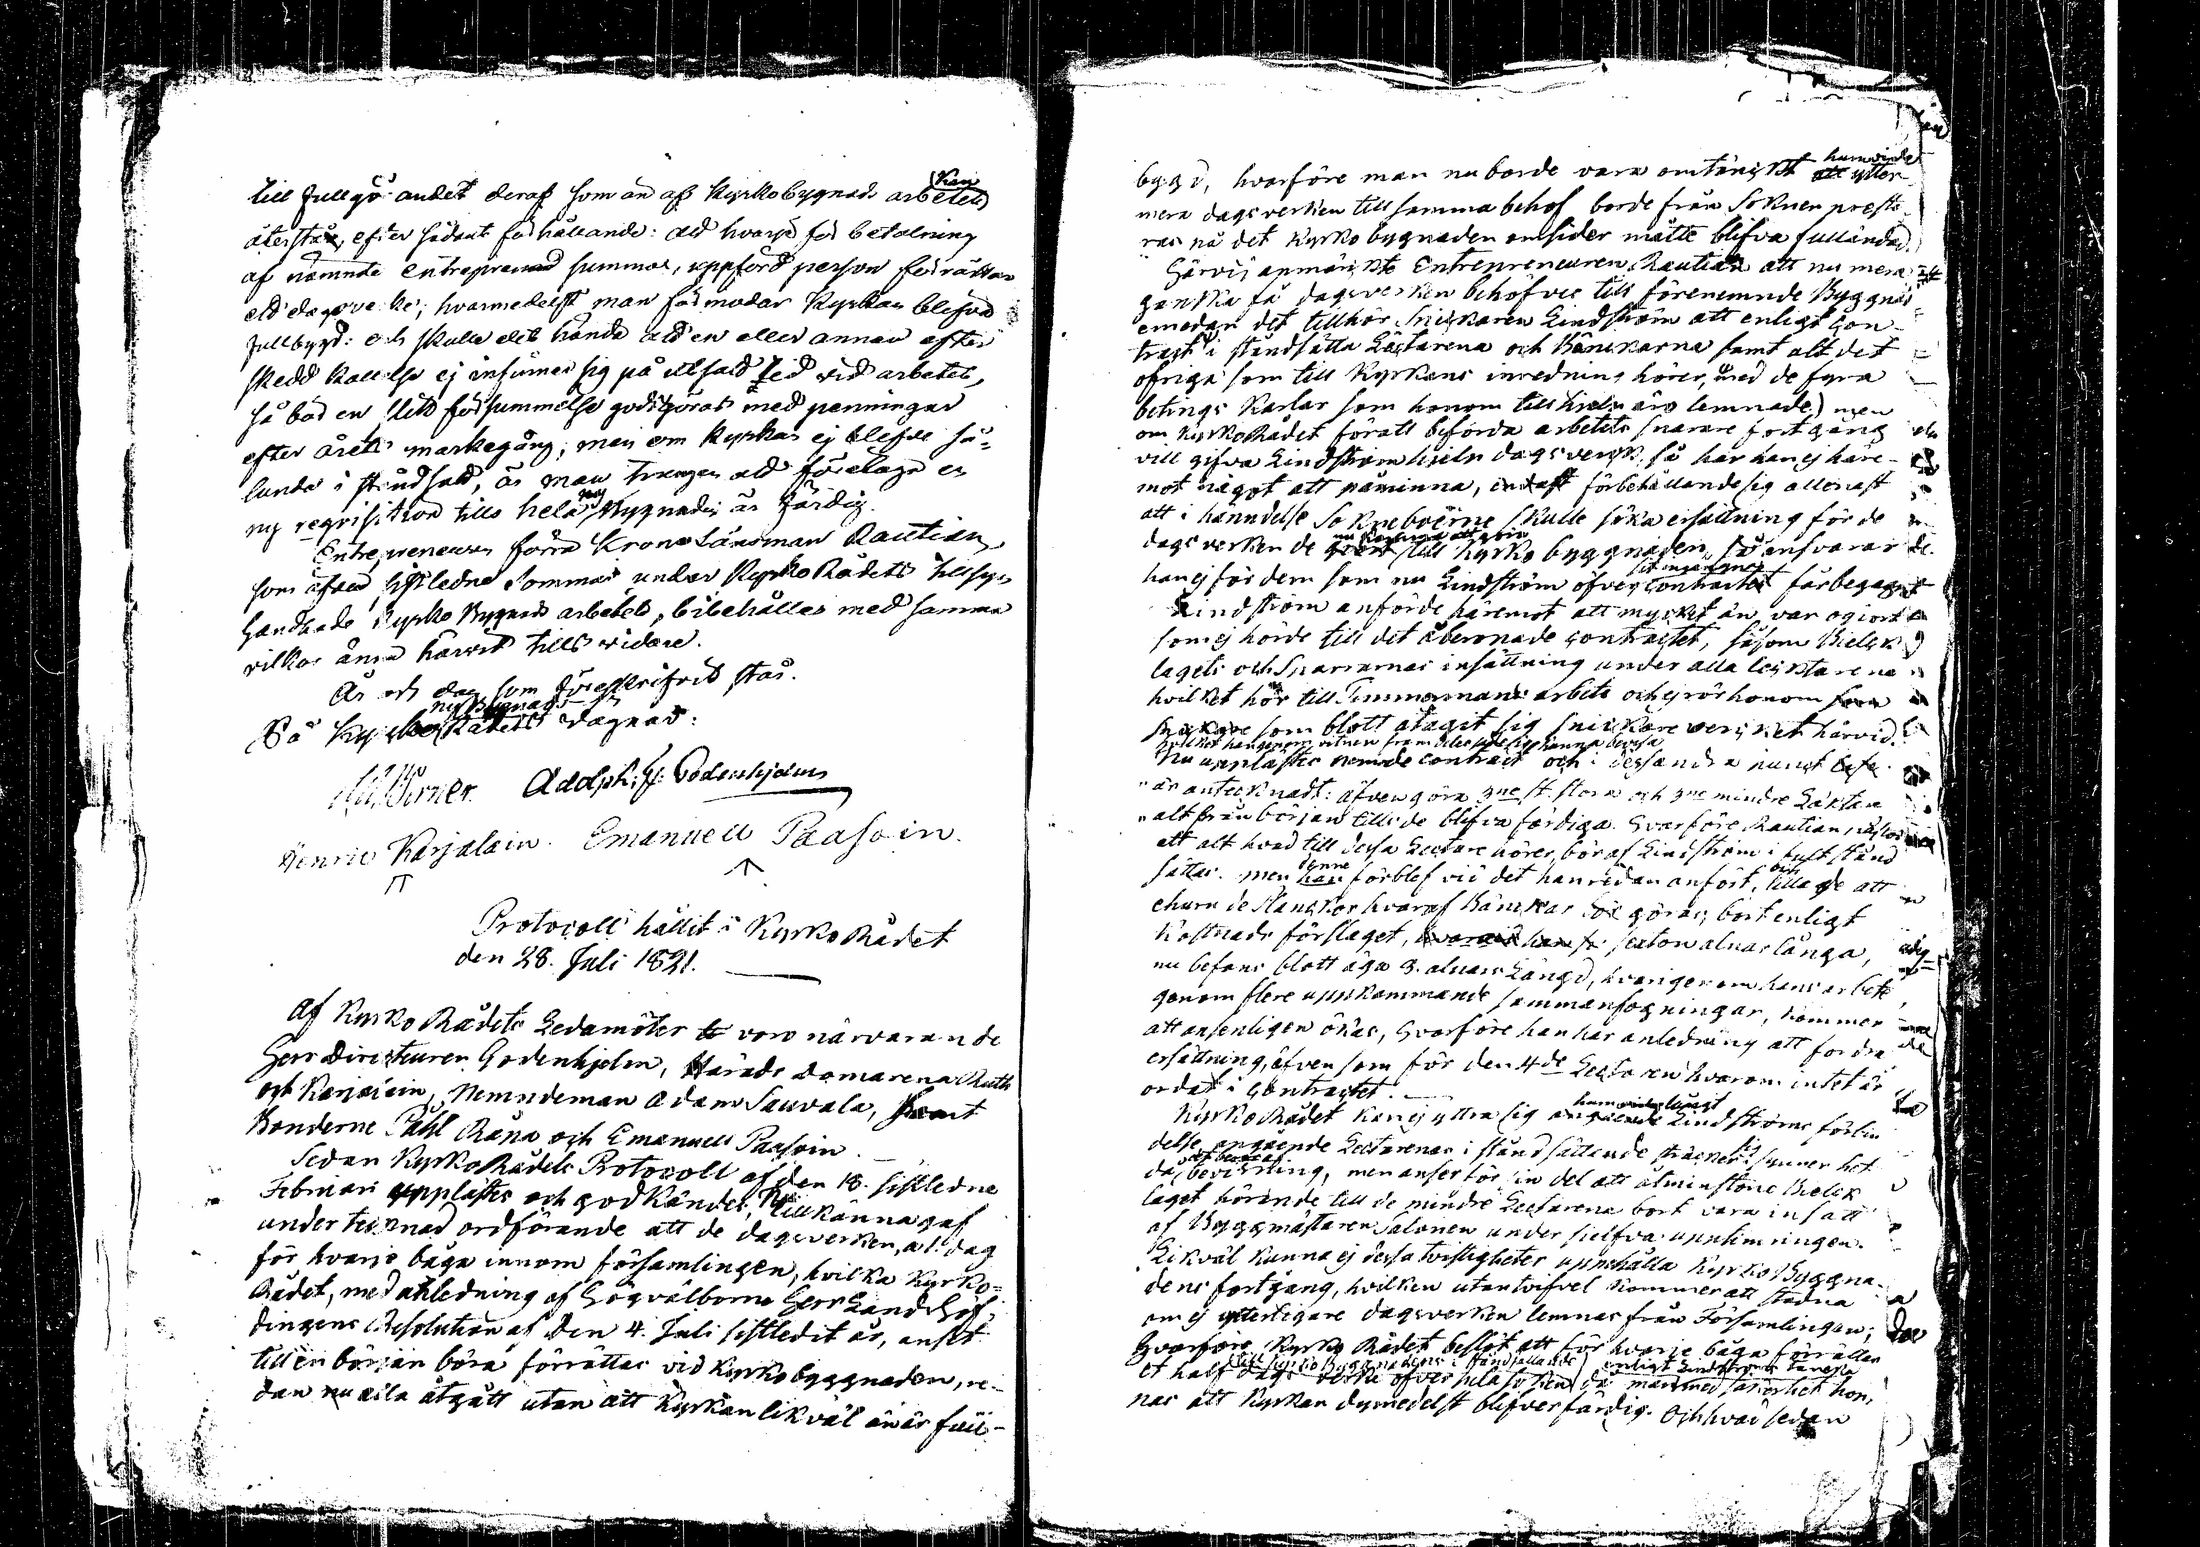 till fullgörandet deraf som än af Kyrkobygnads arbetet kan
återstå, efter sådant förhållande: att hvarje för betalning
af nämnde entreprenad summa, uppförd person förrättar
ett dagsverke; hvarmedelst man förmodar Kyrkan blifva
fullbygd: och skulle det hända att en eller annan efter
skedd kallelse ej infinner sig på utsatt tid vid arbetet,
så bör en slik försummelse godtgöras med penningar
efter årets markegång; men om Kyrkan ej blefve så-
lunda i ståndsatt, är man tvungen att företaga en
ny reqvisition tills hela nybygnaden är färdig.
Entrepreneuren förra Krono Länsman Rautian,
som äfven sistledne Sommar under Kyrko Rådets tillsyn
handhade Kyrko Bygnads arbetet, bibehålles med samma
vilkor ännu härvid tills vidare.
År och dag som föreskrifvit står.
På Kyrko nybygnads Rådets vägnar:
Adolph. F. Godenhjelm
Henric Karjalain. Emanuell Paasoin.
Protocoll hållit i Kyrko Rådet
den 28. Juli 1821.
Af Kyrko Rådets Ledamöter voro närvarande
Herr Directeuren Godenhjelm, Härads Domarena Ruth
och Karjalain, Nemndeman Adam Sauvala, samt
Bönderne Påhl Räna och Emanuell Paasoin.
Sedan Kyrko Rådets Protocoll af den 18. sistledne
Februari upplästes och godkändes, tillkännagaf
undertecknad ordförande att de dagsverken, a 1. dag
för hvarje båga innom församlingen, hvilka Kyrko-
Rådet, med anledning af Högvälborne Herr Landshöf-
dingens Resolution af den 4. Juli sistledit år, anset
till en början böra förrättas vid Kyrkobyggnaden, re-
dan nu alla åtgått utan att Kyrkan likväl än är full-
bygd, hvarföre man nu borde vara omtänkt huruvida ytter-
mera dagsverken till samma behof borde från Soknen preste-
ras på det Kyrkobygnaden omsider måtte blifva fulländad.
Härvid anmärkte Entrepreneuren Rautian att nu mera
ganska få dagsverken behöfves till förenemnde Byggnad
emedan det tillhör Snickaren Lindström att enligt Con-
tract i ståndsätta Läctarena och Bänckarna samt alt det
öfriga som till Kyrkans inredning hörer, med de fyra
betings Karlar som honom till hielp äro lemnade) men
om Kyrko Rådet föratt befordra arbetets snarare fortgång
vill gifva Lindström hielp dagsverk, så har han ej häre-
mot något att påminna, förbehållande sig allenast
att i händelse Sokneboerne skulle söka ersättning för de
dagsverken de nu komma att göra till Kyrko byggnaden, så ansvarar
han ej för dem som nu Lindström öfver Contractet förbegagnat
Lindström anförde häremot att mycket än var ogiort
som ej hörde till det åberopade Contractet, såsom Bielck
lagets och Sparrarnas insättning under alla Lecktarena
hvilket hör till Timmermans arbete och ej rör honom
som blott åtagit sig snickare verket härvid.
Nu upplästes nemnde Contract och i dess andra punct
är antecknadt: äfven göra 3ne st. stora och 3ne mindre Läktare
alt från början tills de blifva färdiga. Hvarföre Rautian påstod
att alt hvad till dessa Lectare hörer, bör af Lindström i fult stånd
sättas. men denne förblef vid det han redan anfört, och tillade att
ehuru de Planckor hvaraf Bänckar göras, bort enligt
Kostnads förslaget, sexton alnar långa,
nu befans blott äga 9. alnars Längd, hvarigenom hans arbete
genom flere uppkommande sammanfogningar, kommer
att ansenligen ökas, hvarföre han har anledning att fordra
ersättning, äfven som för den 4de Lectaren hvarom intet är
ordat i Contractet.
Kyrko Rådet kan ej yttra sig huruvida långt Lindströms förbin
delse angående Lectarenas i ståndsättande sträcker sig i synnerhet
men anser för sin del att åtminstone Bielck
laget hörande till de mindre Lectarena bort vara insatt
af Byggmästaren Salonen under sielfva upptimringen.
Likväl kunna ej dessa tvistigheter uppehålla Kyrko Byggna-
dens fortgång, hvilken utan tvifvel kommer att stadna
om ej ytterligare dagsverken lemnas från Församlingen;
Hvarföre Kyrko Rådet beslöt att för hvarje båga förrättas
et half dags verke öfver hela Soknen till Kyrko Byggnadens i ståndsättande, då enligt Lindströms tanka man med säkerhet hop-
pas att Kyrkan dymedelst blifver färdig. Och hvad sedan